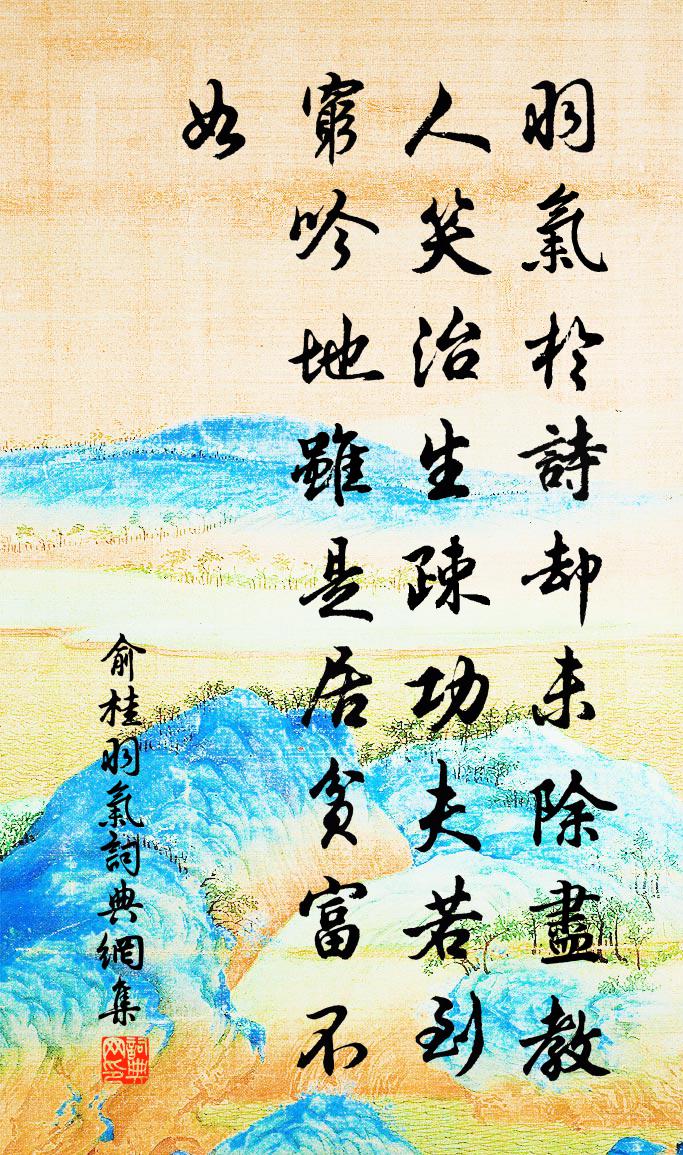 習氣於詩却未除盡教
人笑治生疎功夫若到
窮吟地雖是居貧富不
如
俞桂習氣詞典網集
詞典網印